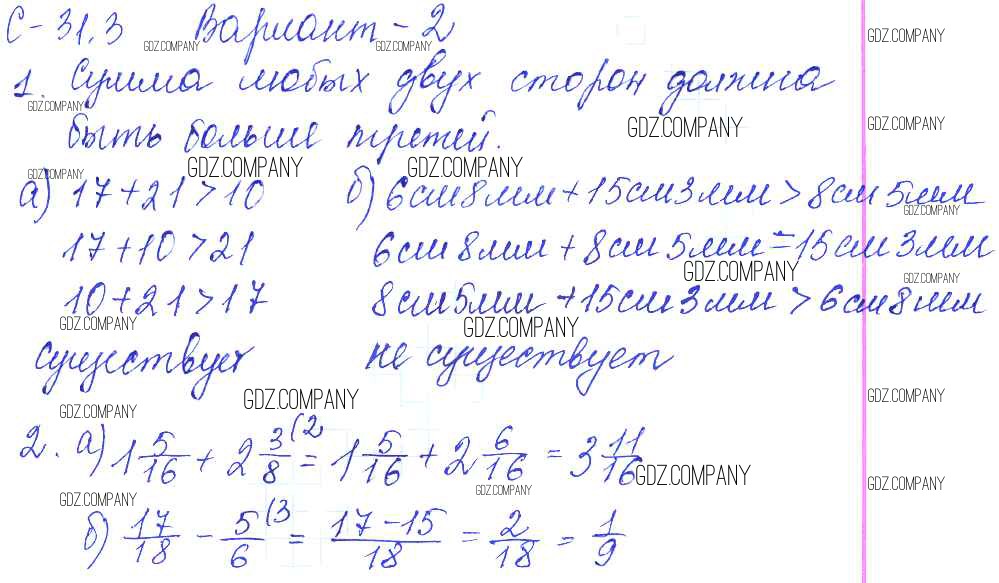 С-31.3 Вариант-2
GDZ.COMPANY GDZ.COMPANY GDZ.COMPANY
1. Сумма любых двух сторон должна
GDZ.COMPANY
быть больше третей.
GDZ.COMPANY GDZ.COMPANY
GDZ.COMPANY GDZ.COMPANY GDZ.COMPANY
а) 17+21>10 б) 6см8мм+15см3мм>8см5мм
GDZ.COMPANY
17+10>21 6см8мм+8см5мм=15см3мм
GDZ.COMPANY GDZ.COMPANY
10+21>17 8см5мм+15см3мм>6см8мм
GDZ.COMPANY GDZ.COMPANY
существует не существует
GDZ.COMPANY GDZ.COMPANY GDZ.COMPANY
2. а) 1 5/16 + 2 3/8 (2 = 1 5/16 + 2 6/16 = 3 11/16
GDZ.COMPANY GDZ.COMPANY GDZ.COMPANY GDZ.COMPANY
б) 17/18 - 5/6 (3 = 17-15/18 = 2/18 = 1/9